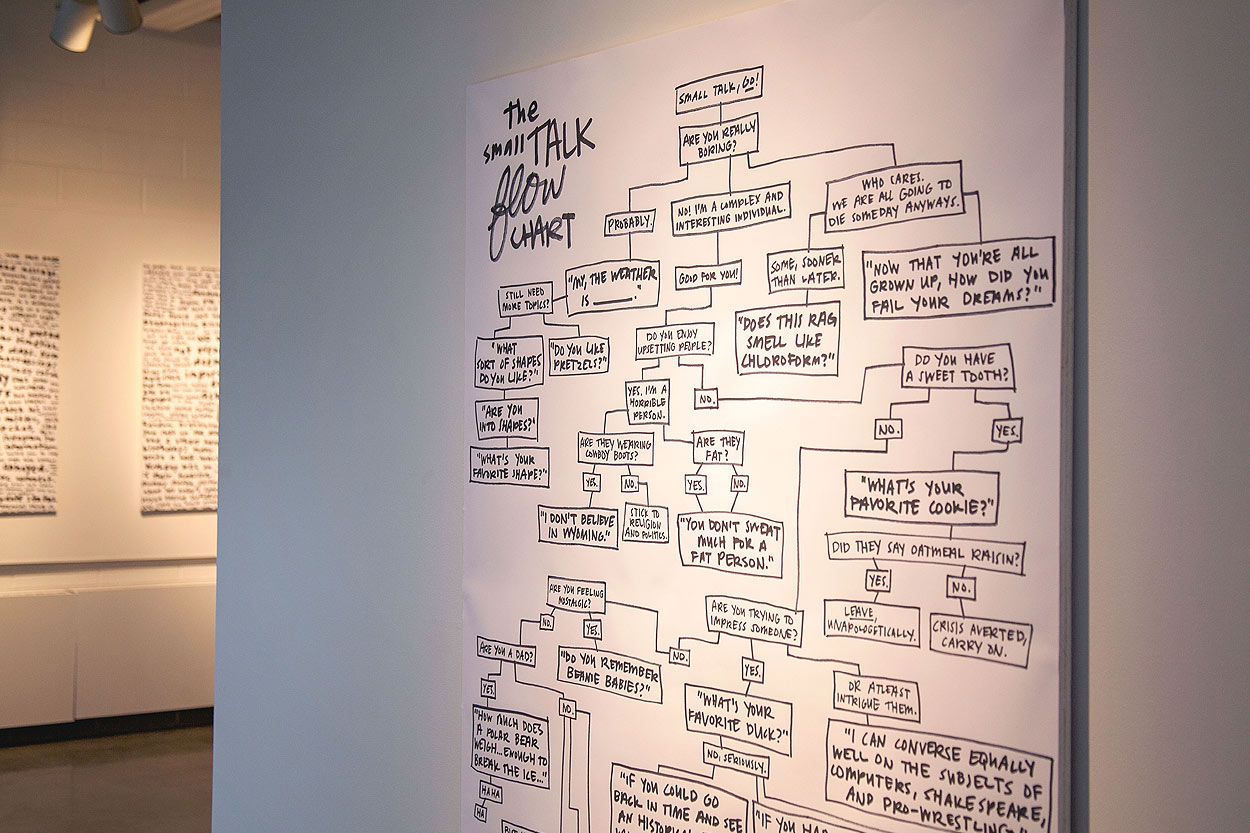 the
small TALK
flow
CHART
SMALL TALK, GO!
ARE YOU REALLY
BORING?
PROBABLY.
NO! I'M A COMPLEX AND
INTERESTING INDIVIDUAL.
WHO CARES.
WE ARE ALL GOING TO
DIE SOMEDAY ANYWAYS.
"MY, THE WEATHER
IS ____."
GOOD FOR YOU!
SOME, SOONER
THAN LATER.
"NOW THAT YOU'RE ALL
GROWN UP, HOW DID YOU
FAIL YOUR DREAMS?"
STILL NEED
MORE TOPICS?
"DOES THIS RAG
SMELL LIKE
CHLOROFORM?"
"WHAT
SORT OF SHAPES
DO YOU LIKE?"
"DO YOU LIKE
PRETZELS?"
DO YOU ENJOY
UPSETTING PEOPLE?
DO YOU HAVE
A SWEET TOOTH?
YES, I'M A
HORRIBLE
PERSON.
NO.
"ARE YOU
INTO SHAPES?"
NO.
YES.
"WHAT'S YOUR
FAVORITE SHAPE?"
ARE THEY WEARING
COWBOY BOOTS?
ARE THEY
FAT?
YES.
NO.
YES.
NO.
"WHAT'S YOUR
FAVORITE COOKIE?"
"I DON'T BELIEVE
IN WYOMING."
STICK TO
RELIGION
AND POLITICS.
"YOU DON'T SWEAT
MUCH FOR A
FAT PERSON."
DID THEY SAY OATMEAL RAISIN?
YES.
NO.
LEAVE,
UNAPOLOGETICALLY.
CRISIS AVERTED,
CARRY ON.
ARE YOU FEELING
NOSTALGIC?
NO.
YES.
ARE YOU TRYING TO
IMPRESS SOMEONE?
ARE YOU A DAD?
"DO YOU REMEMBER
BEANIE BABIES?"
NO.
YES.
OR ATLEAST
INTRIGUE THEM.
YES.
NO.
"WHAT'S YOUR
FAVORITE DUCK?"
"HOW MUCH DOES
A POLAR BEAR
WEIGH... ENOUGH TO
BREAK THE ICE..."
NO, SERIOUSLY.
"I CAN CONVERSE EQUALLY
WELL ON THE SUBJECTS OF
COMPUTERS, SHAKESPEARE,
AND PRO-WRESTLING."
HAHA
HA
"IF YOU COULD GO
BACK IN TIME AND SEE
AN HISTORICAL
"IF YOU HA